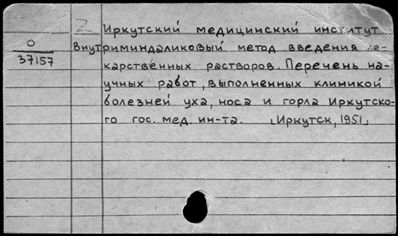 Z Иркутский медицинский институт
О
37157
Внутриминдаликовый метод введения ле-
карственных растворов. Перечень на-
учных работ, выполненных клиникой
болезней уха, носа и горла Иркутско-
го гос. мед. ин-та. [Иркутск, 1951]